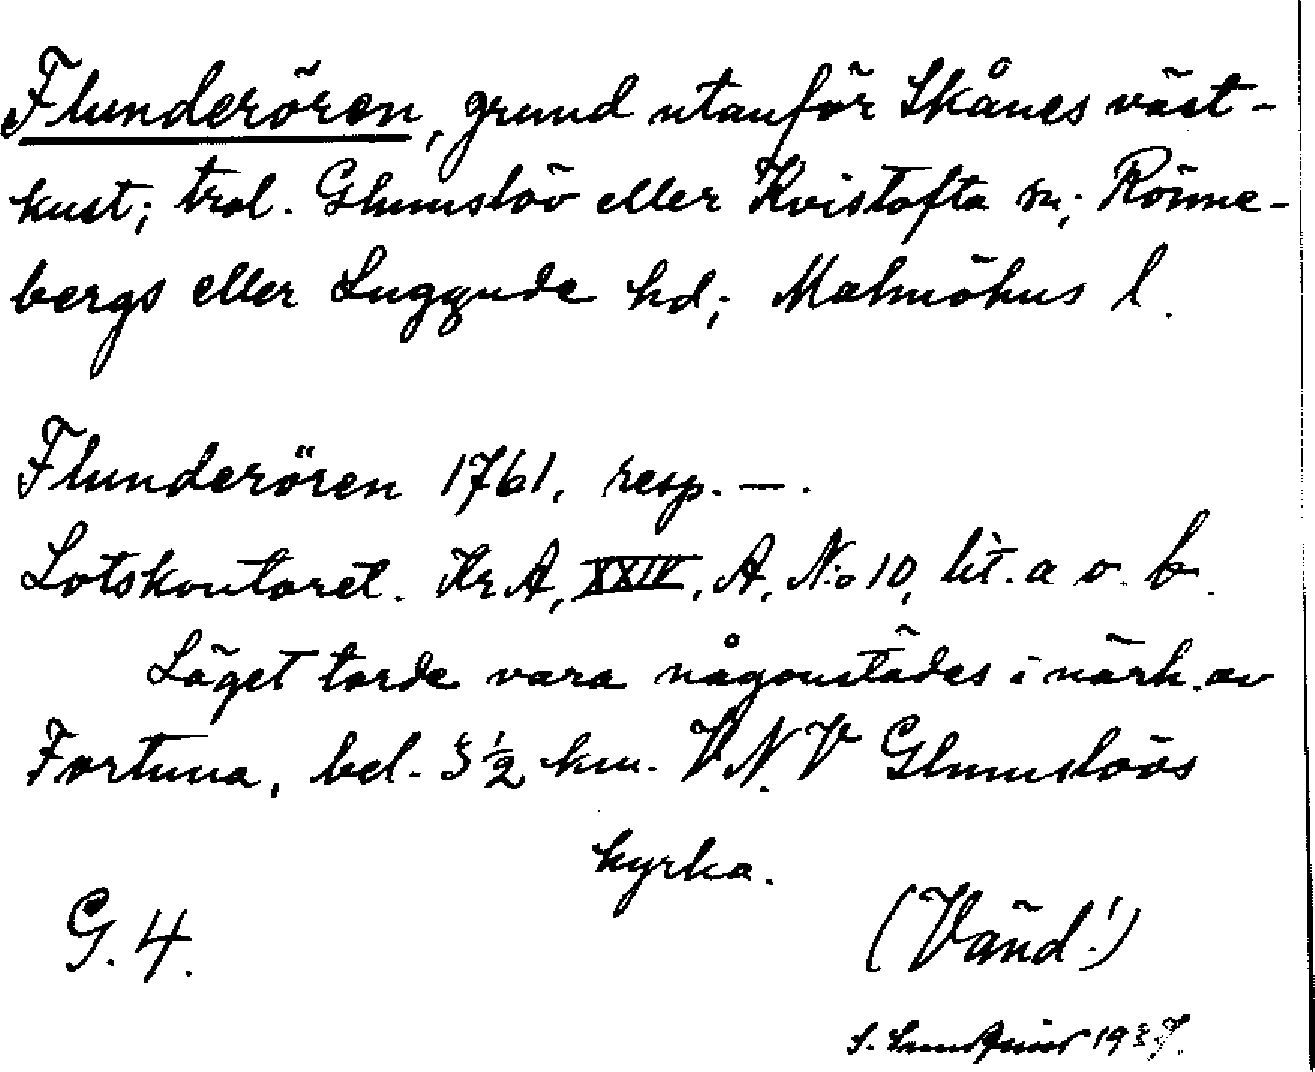 Flunderören, grund utanför Skånes väst-
kust; trol. Glumslöv eller Kvistofta sn; Rönne-
bergs eller Luggude hd; Malmöhus l.
Flunderören 1761, resp. —.
Lotskontoret. Kr.A, XXIV, A, No 10, lit. a o. b.
Läget torde vara någonstädes i närh. av
Fortuna, bel. 3 1/2 km. VNV Glumslövs
kyrka.
G. 4.
(Vänd!)
S. 1937.